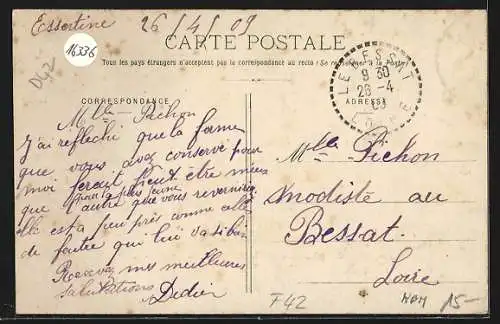 Essertine 26/4/09
16336
D42
CARTE POSTALE
Tous les pays étrangers n'acceptent pas le correspondance au recto (Se renseigner à la Poste)
LE BESSAT
9 30
26-4
09
LOIRE
CORRESPONDANCE
ADRESSE
Mlle Pichon
J'ai reflechi que la forme
que vous avez conservé pour
moi ferait peut être mieux
que l'autre que vous reverniez
elle est a peu près comme celle
de feutre qui lui va si bien
Recevez mes meilleures
salutations Didier
Mlle Pichon
modiste au
Bessat.
Loire
F42
15-